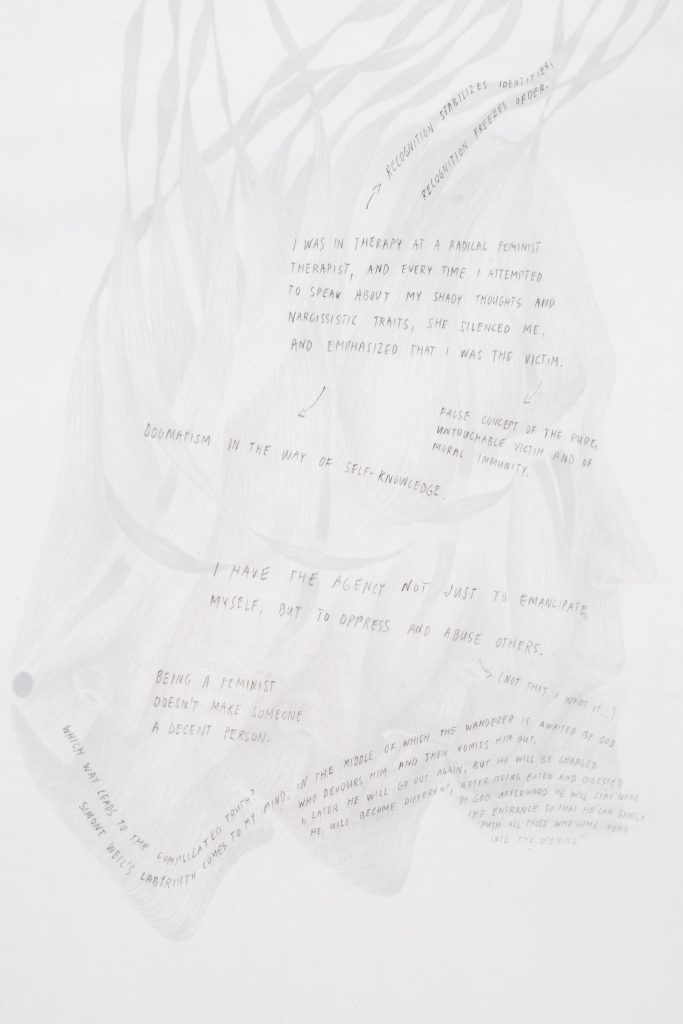 RECOGNITION STABILIZES IDENTITIES,
RECOGNITION FREEZES ORDER.
I WAS IN THERAPY AT A RADICAL FEMINIST
THERAPIST, AND EVERY TIME I ATTEMPTED
TO SPEAK ABOUT MY SHADY THOUGHTS AND
NARCISSISTIC TRAITS, SHE SILENCED ME,
AND EMPHASIZED THAT I WAS THE VICTIM.
FALSE CONCEPT OF THE PURE,
UNTOUCHABLE VICTIM AND OF
MORAL IMMUNITY.
DOGMATISM IN THE WAY OF SELF-KNOWLEDGE.
I HAVE THE AGENCY NOT JUST TO EMANCIPATE
MYSELF, BUT TO OPPRESS AND ABUSE OTHERS.
(NOT THAT I WANT IT...)
BEING A FEMINIST
DOESN'T MAKE SOMEONE
A DECENT PERSON.
WHICH WAY LEADS TO THE COMPLICATED TRUTH?
SIMONE WEIL'S LABYRINTH COMES TO MY MIND, IN THE MIDDLE OF WHICH THE WANDERER IS AWAITED BY GOD
WHO DEVOURS HIM AND THEN VOMITS HIM OUT.
"LATER HE WILL GO OUT AGAIN, BUT HE WILL BE CHANGED.
HE WILL BECOME DIFFERENT, AFTER BEING EATEN AND DIGESTED
BY GOD. AFTERWARD HE WILL STAY NEAR
THE ENTRANCE SO THAT HE CAN GENTLY
PUSH ALL THOSE WHO COME NEAR
INTO THE OPENING."